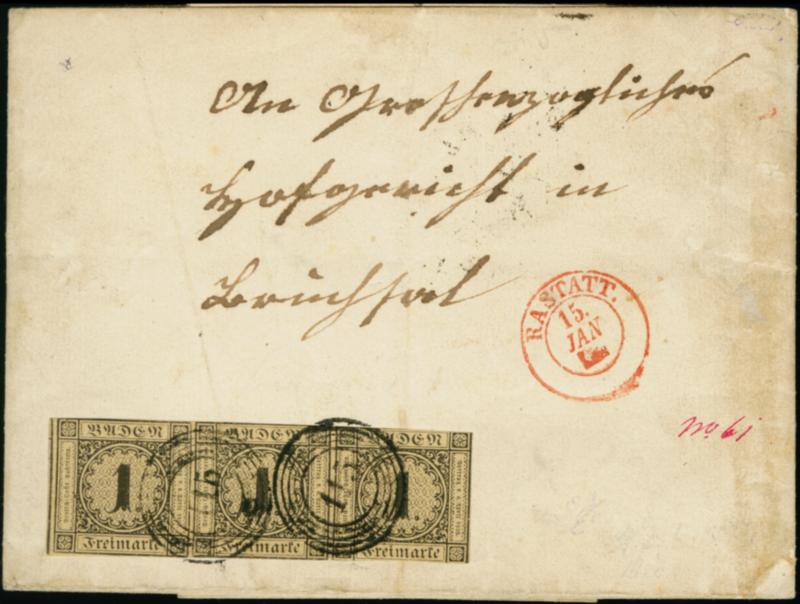 An Grossherzogliches
Hofgericht in
Bruchsal
RASTATT.
15.
JAN
No. 61
BADEN
BADEN
BADEN
1
1
1.
115
115
Freimarke
Freimarke
Freimarke